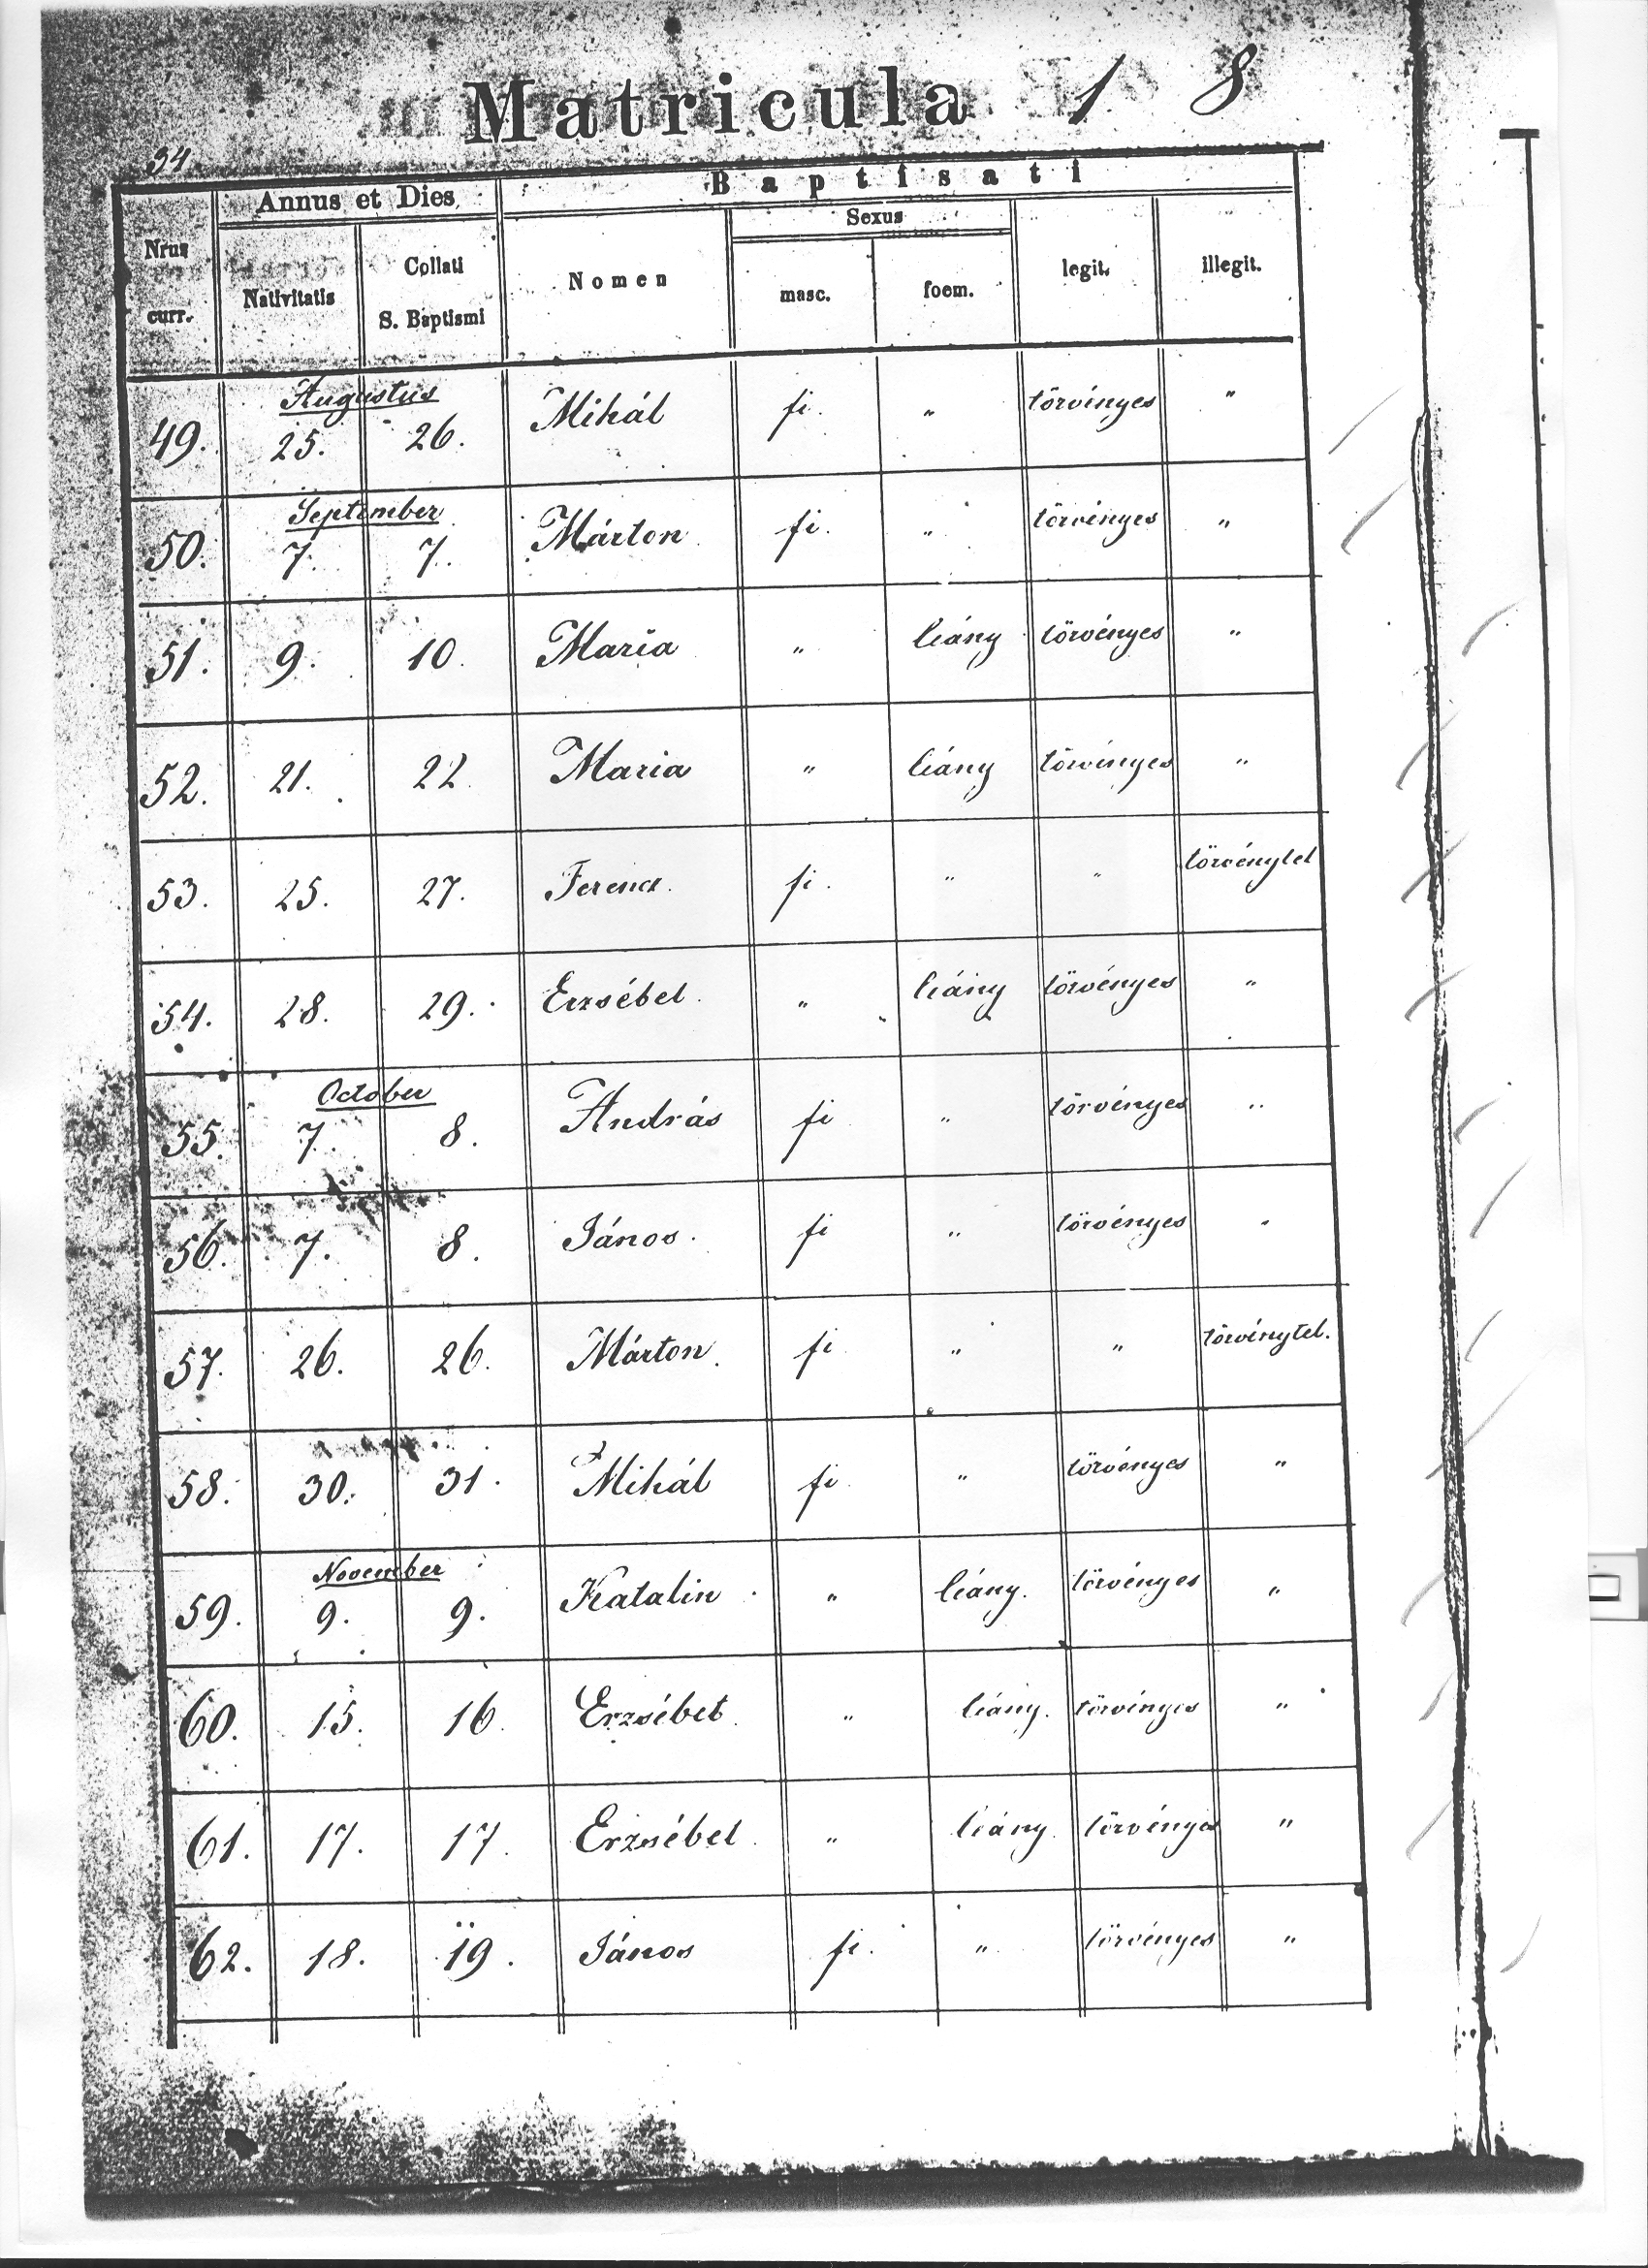 Matricula 1 8
34
Annus et Dies
Baptisati
Nrus curr.
Nativitatis
Collati S. Baptismi
Nomen
Sexus
masc.
foem.
legit.
illegit.
Augustus
49. 25. 26. Mihál fi. " törvényes "
September
50. 7. 7. Márton fi. " törvényes "
51. 9. 10. Maria " leány törvényes "
52. 21. 22 Maria " leány törvényes "
53. 25. 27. Ferencz. fi. " " törvénytel
54. 28. 29. Erzsébet. " leány törvényes "
October
55. 7. 8. András fi " törvényes "
56. 7. 8. János. fi " törvényes "
57. 26. 26. Márton. fi " " törvénytel.
58. 30. 31. Mihál fi " törvényes "
November
59. 9. 9. Katalin " leány. törvényes "
60. 15. 16. Erzsébet. " leány. törvényes "
61. 17. 17. Erzsébet " leány törvényes "
62. 18. 19. János fi. " törvényes "